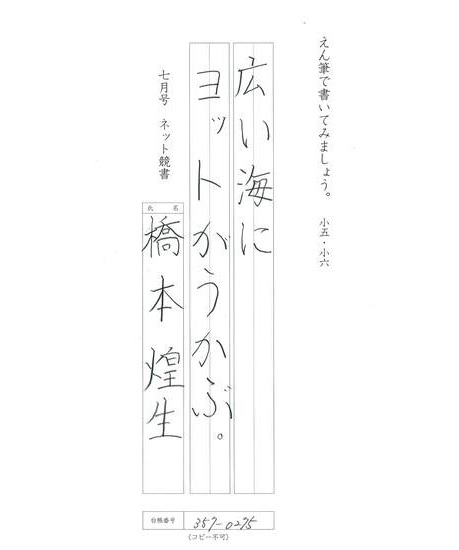 えん筆で書いてみましょう。 小五・小六
広い海に
ヨットがうかぶ。
七月号 ネット競書
氏名
橋本煌生
台帳番号 357-0275
(コピー不可)